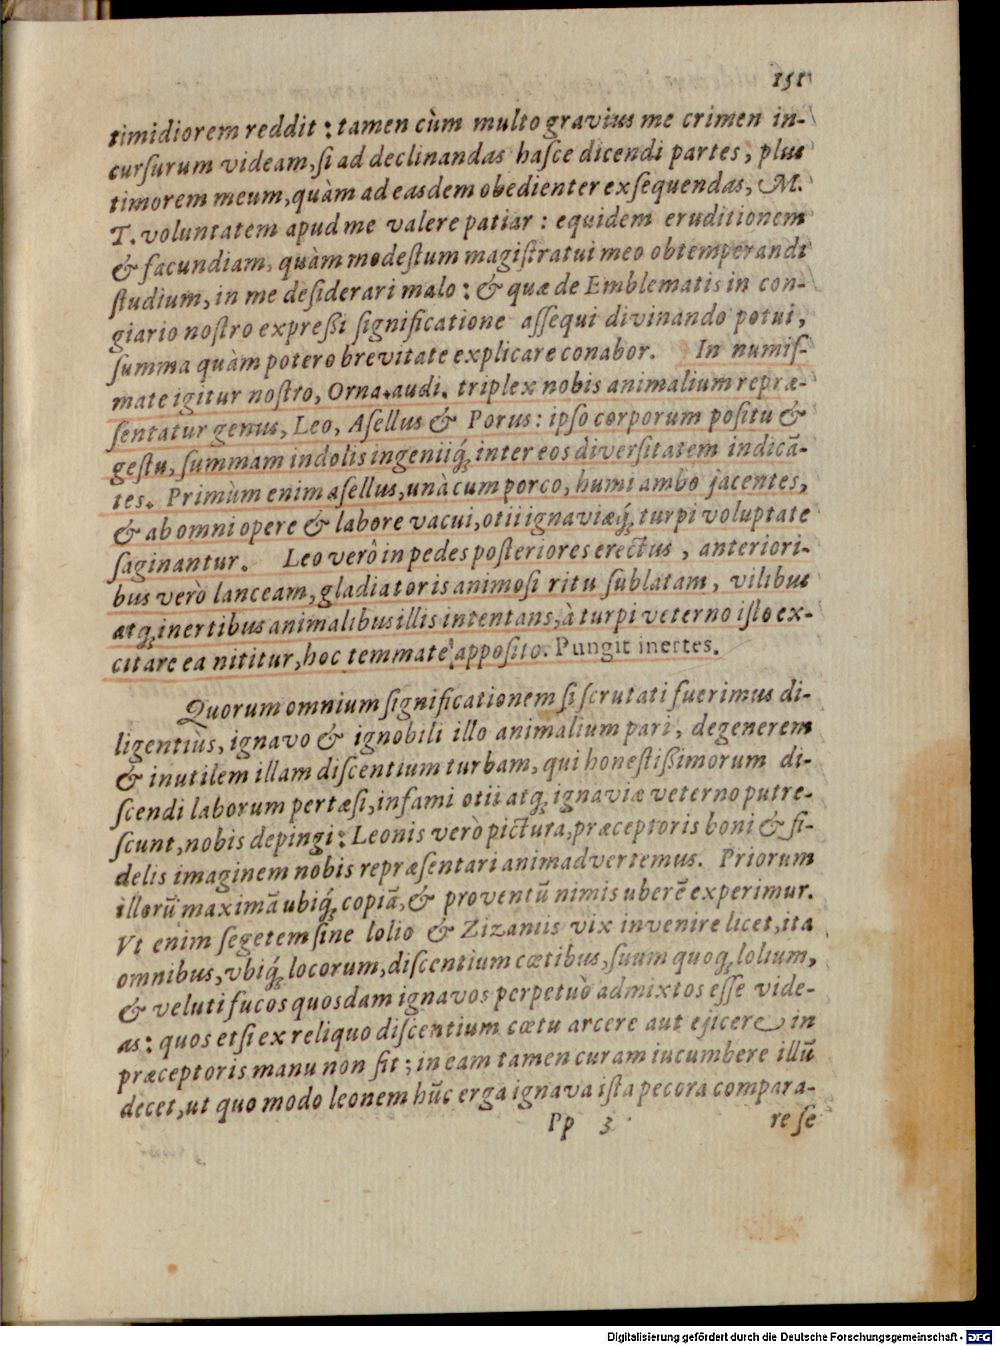 151
timidiorem reddit : tamen cùm multo gravius me crimen in-
cursurum videam, si ad declinandas hasce dicendi partes, plus
timorem meum, quàm ad easdem obedienter exsequendas, M.
T. voluntatem apud me valere patiar : equidem eruditionem
& facundiam, quàm modestum magistratui meo obtemperandi
studium, in me desiderari malo : & quæ de Emblematis in con-
giario nostro expressi significatione assequi divinando potui,
summa quàm potero brevitate explicare conabor. In numis-
mate igitur nostro, Orna. audi. triplex nobis animalium repræ-
sentatur genus, Leo, Asellus & Porus : ipso corporum positu &
gestu, summam indolis ingeniiq́; inter eos diversitatem indicã-
tes. Primùm enim asellus, unà cum porco, humi ambo jacentes,
& ab omni opere & labore vacui, otii ignaviæq́; turpi voluptate
saginantur. Leo verò in pedes posteriores erectus, anteriori-
bus verò lanceam, gladiatoris animosi ritu sublatam, vilibus
atq; inertibus animalibus illis intentans, à turpi veterno isto ex-
citare ea nititur, hoc temmate apposito. Pungit inertes.
Quorum omnium significationem si scrutati fuerimus di-
ligentiùs, ignavo & ignobili illo animalium pari, degenerem
& inutilem illam discentium turbam, qui honestissimorum di-
scendi laborum pertæsi, infami otii atq; ignaviæ veterno putre-
scunt, nobis depingi : Leonis verò pictura, præceptoris boni & fi-
delis imaginem nobis repræsentari animadvertemus. Priorum
illorũ maximã ubiq́; copiã, & proventũ nimis uberẽ experimur.
Vt enim segetem sine lolio & Zizaniis vix invenire licet, ita
omnibus, vbiq́; locorum, discentium cœtibus, suum quoq; lolium,
& veluti fucos quosdam ignavos perpetuò admixtos esse vide-
as : quos etsi ex reliquo discentium cœtu arcere aut ejicere in
præceptoris manu non sit ; in eam tamen curam iucumbere illũ
decet, ut quo modo leonem hũc erga ignava ista pecora compara-
Pp 3 re se
Digitalisierung gefördert durch die Deutsche Forschungsgemeinschaft - DFG